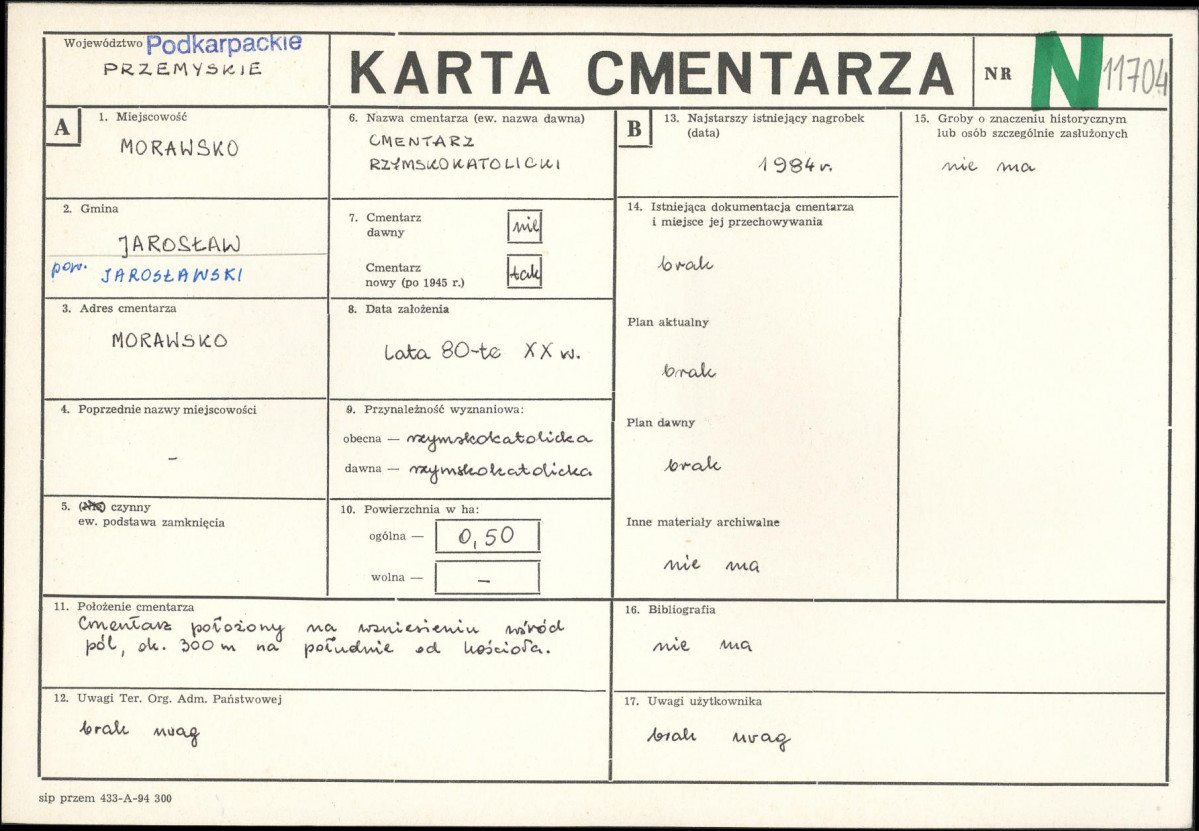 Województwo Podkarpackie
PRZEMYSKIE
KARTA CMENTARZA
NR N 11704
A
1. Miejscowość
MORAWSKO
2. Gmina
JAROSŁAW
pow. JAROSŁAWSKI
3. Adres cmentarza
MORAWSKO
4. Poprzednie nazwy miejscowości
–
5. (Nie) czynny
ew. podstawa zamknięcia
6. Nazwa cmentarza (ew. nazwa dawna)
CMENTARZ
RZYMSKOKATOLICKI
7. Cmentarz
dawny
nie
Cmentarz
nowy (po 1945 r.)
tak
8. Data założenia
Lata 80-te XX w.
9. Przynależność wyznaniowa:
obecna — rzymskokatolicka
dawna — rzymskokatolicka
10. Powierzchnia w ha:
ogólna — 0,50
wolna — –
11. Położenie cmentarza
Cmentarz położony na wzniesieniu wśród
pól, ok. 300 m na południe od kościoła.
12. Uwagi Ter. Org. Adm. Państwowej
brak uwag
B
13. Najstarszy istniejący nagrobek
(data)
1984 r.
14. Istniejąca dokumentacja cmentarza
i miejsce jej przechowywania
brak
Plan aktualny
brak
Plan dawny
brak
Inne materiały archiwalne
nie ma
15. Groby o znaczeniu historycznym
lub osób szczególnie zasłużonych
nie ma
16. Bibliografia
nie ma
17. Uwagi użytkownika
brak uwag
sip przem 433-A-94 300